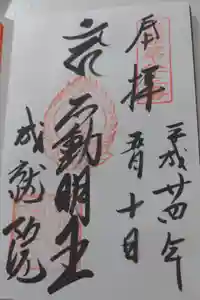 平成廿四年
奉拝
五月十日
不動明王
成就院